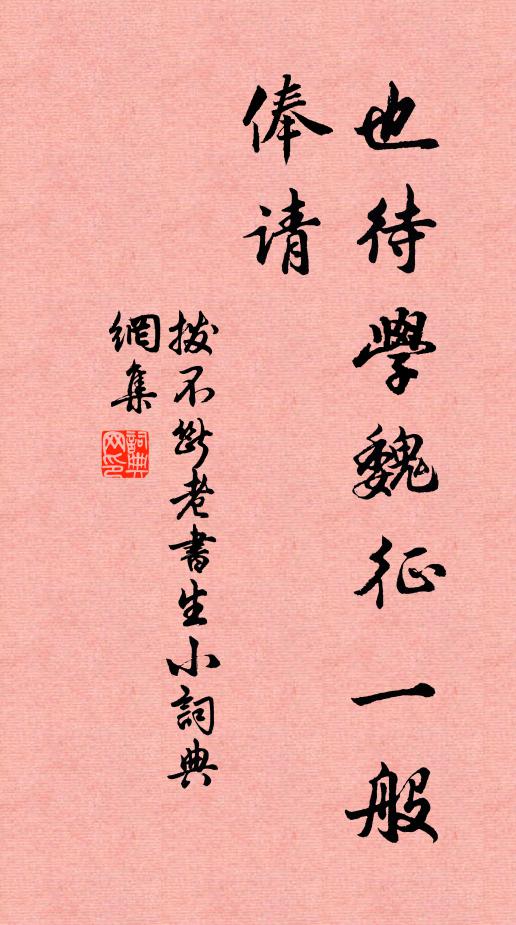 也待學魏征一般
俸请
拨不斷老書生小詞典
網集
詞典
网印